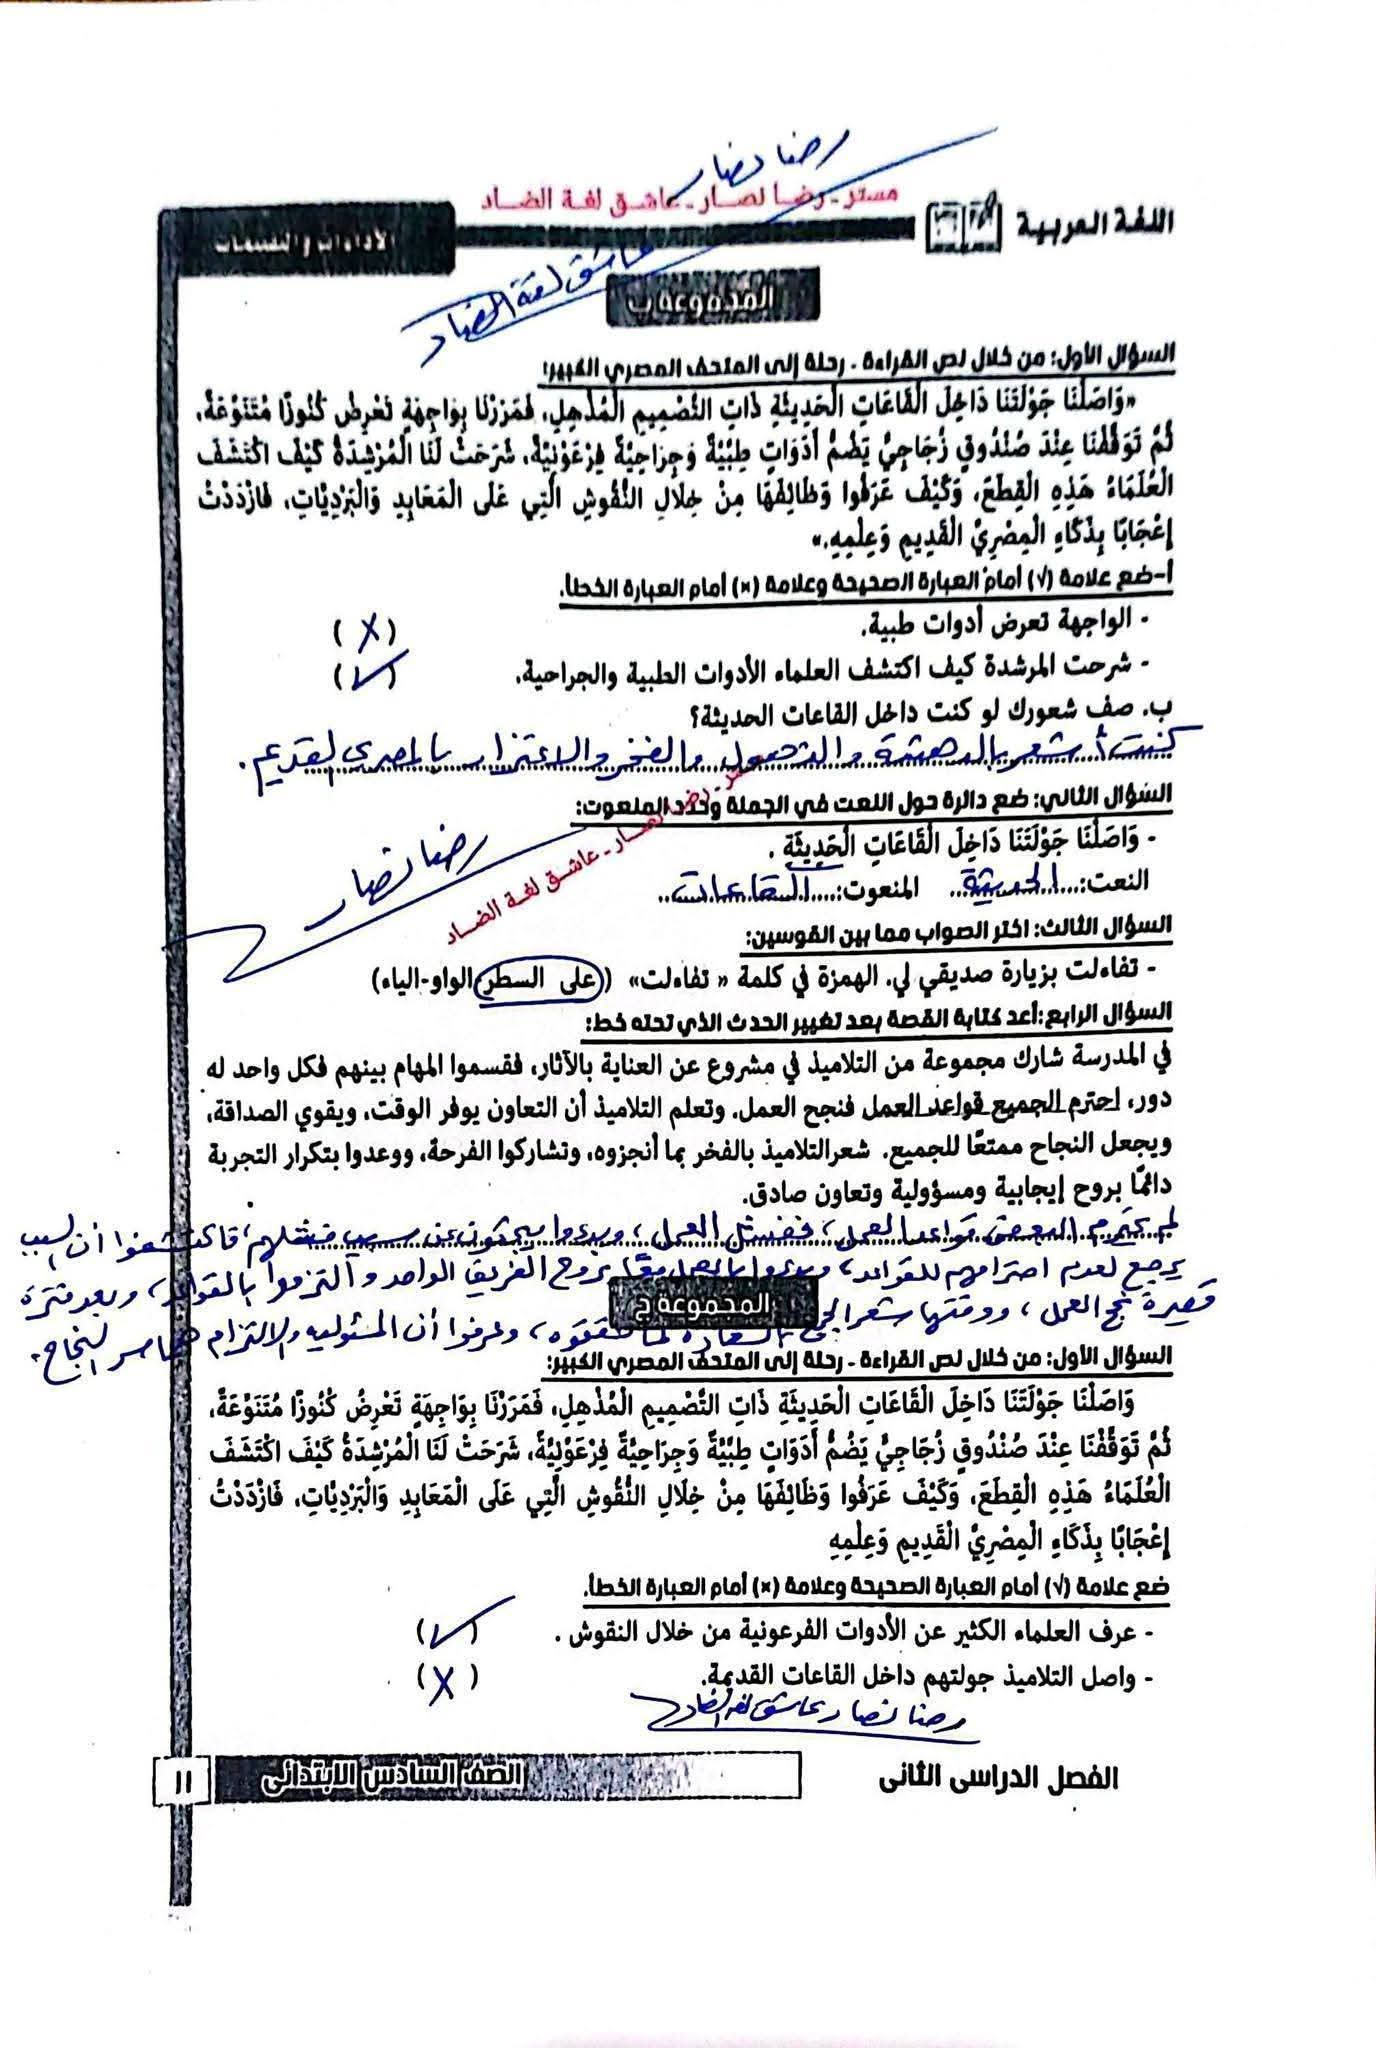 رضا نصار
مستر - رضا نصار - عاشق لغة الضاد
اللغة العربية
الأداءات والتقييمات
عاشق لغة الضاد
المجموعة ب
السؤال الأول: من خلال نص القراءة - رحلة إلى المتحف المصري الكبير:
«وَاصَلْنَا جَوْلَتَنَا دَاخِلَ الْقَاعَاتِ الْحَدِيثَةِ ذَاتِ التَّصْمِيمِ الْمُذْهِلِ، فَمَرَرْنَا بِوَاجِهَةٍ تَعْرِضُ كُنُوزًا مُتَنَوِّعَةً،
ثُمَّ تَوَقَّفْنَا عِنْدَ صُنْدُوقٍ زُجَاجِيٍّ يَضُمُّ أَدَوَاتٍ طِبِّيَّةً وَجِرَاحِيَّةً فِرْعَوْنِيَّةً، شَرَحَتْ لَنَا الْمُرْشِدَةُ كَيْفَ اكْتَشَفَ
الْعُلَمَاءُ هَذِهِ الْقِطَعَ، وَكَيْفَ عَرَفُوا وَظَائِفَهَا مِنْ خِلَالِ النُّقُوشِ الَّتِي عَلَى الْمَعَابِدِ وَالْبَرْدِيَّاتِ، فَازْدَدْتُ
إِعْجَابًا بِذَكَاءِ الْمِصْرِيِّ الْقَدِيمِ وَعِلْمِهِ.»
أ-ضع علامة (√) أمام العبارة الصحيحة وعلامة (×) أمام العبارة الخطأ.
- الواجهة تعرض أدوات طبية. (X)
- شرحت المرشدة كيف اكتشف العلماء الأدوات الطبية والجراحية. (✓)
ب. صف شعورك لو كنت داخل القاعات الحديثة؟
كنت أشعر بالدهشة والذهول والفخر والاعتزاز بالمصري القديم.
السؤال الثاني: ضع دائرة حول النعت في الجملة وحدد المنعوت:
مستر - رضا نصار - عاشق لغة الضاد
- وَاصَلْنَا جَوْلَتَنَا دَاخِلَ الْقَاعَاتِ الْحَدِيثَةِ .
رضا نصار
النعت: الحديثة المنعوت: القاعات
السؤال الثالث: اختر الصواب مما بين القوسين:
- تفاءلت بزيارة صديقي لي. الهمزة في كلمة « تفاءلت» (على السطر-الواو-الياء)
السؤال الرابع:أعد كتابة القصة بعد تغيير الحدث الذي تحته خط:
في المدرسة شارك مجموعة من التلاميذ في مشروع عن العناية بالآثار، فقسموا المهام بينهم فكل واحد له
دور، احترم الجميع قواعد العمل فنجح العمل. وتعلم التلاميذ أن التعاون يوفر الوقت، ويقوي الصداقة،
ويجعل النجاح ممتعًا للجميع. شعرالتلاميذ بالفخر بما أنجزوه، وتشاركوا الفرحة، ووعدوا بتكرار التجربة
دائمًا بروح إيجابية ومسؤولية وتعاون صادق.
لم يحترم البعض قواعد العمل، ففشل العمل، وبدءوا يبحثون عن سبب فشلهم، فاكتشفوا أن السبب
يرجع لعدم احترامهم للقواعد، وبدءوا بالعمل معًا بروح الفريق الواحد والتزموا بالقواعد، وبعد فترة
قصيرة نجح العمل، ووقتها شعر الجميع بالسعادة لما حققوه، وعرفوا أن المسئولية والالتزام هما سر النجاح.
المجموعة ج
السؤال الأول: من خلال نص القراءة - رحلة إلى المتحف المصري الكبير:
وَاصَلْنَا جَوْلَتَنَا دَاخِلَ الْقَاعَاتِ الْحَدِيثَةِ ذَاتِ التَّصْمِيمِ الْمُذْهِلِ، فَمَرَرْنَا بِوَاجِهَةٍ تَعْرِضُ كُنُوزًا مُتَنَوِّعَةً،
ثُمَّ تَوَقَّفْنَا عِنْدَ صُنْدُوقٍ زُجَاجِيٍّ يَضُمُّ أَدَوَاتٍ طِبِّيَّةً وَجِرَاحِيَّةً فِرْعَوْنِيَّةً، شَرَحَتْ لَنَا الْمُرْشِدَةُ كَيْفَ اكْتَشَفَ
الْعُلَمَاءُ هَذِهِ الْقِطَعَ، وَكَيْفَ عَرَفُوا وَظَائِفَهَا مِنْ خِلَالِ النُّقُوشِ الَّتِي عَلَى الْمَعَابِدِ وَالْبَرْدِيَّاتِ، فَازْدَدْتُ
إِعْجَابًا بِذَكَاءِ الْمِصْرِيِّ الْقَدِيمِ وَعِلْمِهِ
ضع علامة (√) أمام العبارة الصحيحة وعلامة (×) أمام العبارة الخطأ.
- عرف العلماء الكثير عن الأدوات الفرعونية من خلال النقوش . (✓)
- واصل التلاميذ جولتهم داخل القاعات القديمة. (X)
رضا نصار عاشق لغة الضاد
الفصل الدراسى الثانى
الصف السادس الابتدائى
١١